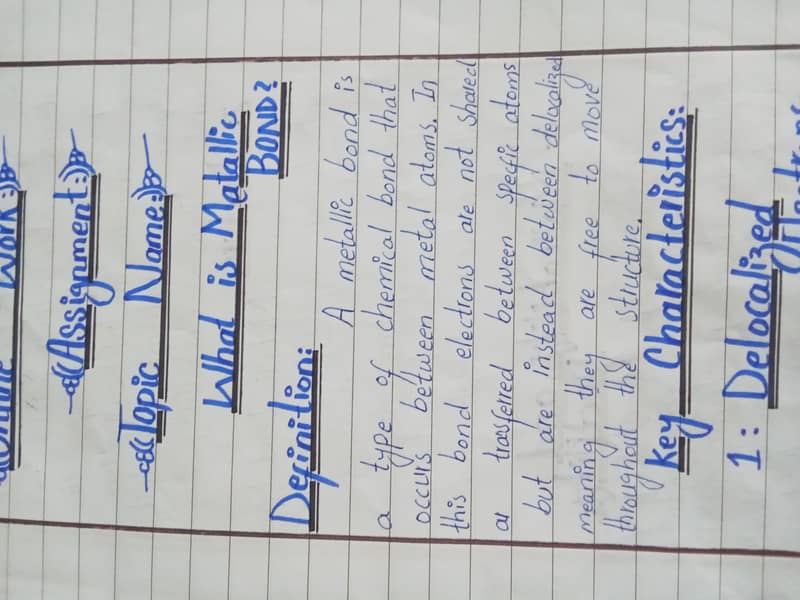 Online Work:
Assignment:
Topic Name:
What is Metallic
BOND?
Definition:
A metallic bond is
a type of chemical bond that
occurs between metal atoms. In
this bond electrons are not shared
or trasferred between specific atoms
but are instead between delocalized
meaning they are free to move
throughout the structure.
Key Characteristics:
1: Delocalized